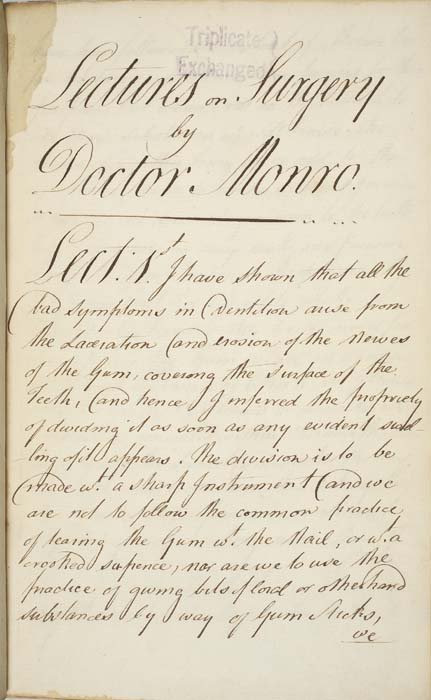 Triplicate
Exchanged
Lectures on Surgery
by
Doctor Monro.
Lect: 1st. I have shown that all the
bad symptoms in Dentition arise from
the Laceration and erosion of the Nerves
of the Gum, covering the surface of the
Teeth, and hence I inferred the propriety
of dividing it as soon as any evident swel-
ling of it appears. The division is to be
made wt. a sharp Instrument and we
are not to follow the common practice
of tearing the Gum wt. the Nail, or wt. a
crooked sixpence, nor are we to use the
practice of giving bits of or other hard
substances by way of Gum Sticks,
we